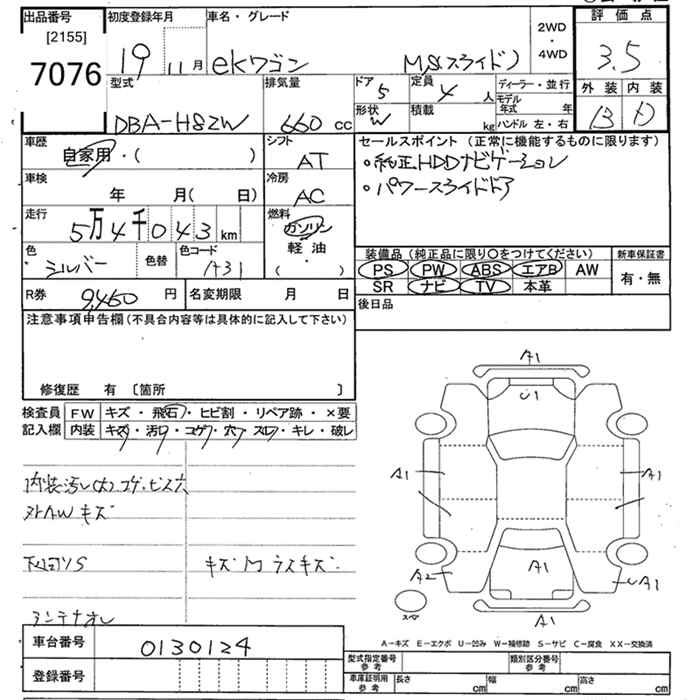 出品番号
[2155]
7076
初度登録年月
19 11月
車名・グレード
ekワゴン MS(スライド)
2WD
・
4WD
評価点
3.5
外装 内装
B D
型式
DBA-H82W
排気量
660 cc
ドア
5
定員
4 人
形状
W
積載
kg
ディーラー・並行
モデル年式 年
ハンドル 左・右
車歴
自家用・( )
シフト
AT
車検
年 月( 日)
冷房
AC
走行
5万4千043 km
燃料
ガソリン
軽・油
( )
色
シルバー
色替
色コード
A31
R券
9,460 円
名変期限 月 日
セールスポイント (正常に機能するものに限ります)
・純正HDDナビゲーション
・パワースライドドア
装備品 (純正品に限り〇をつけてください)
PS PW ABS エアB AW
SR ナビ TV 本革
新車保証書
有・無
後日品
注意事項申告欄 (不具合内容等は具体的に記入して下さい)
修復歴 有 〔箇所 〕
検査員
記入欄
FW キズ・飛石・ヒビ割・リペア跡・×要
内装 キズ・汚レ・コゲ・穴・スレ・キレ・破レ
内装汚レ(大)コゲ、ビス穴
外AWキズ
下回りS
キズM ラスキズ
アンテナオレ
A1
U1
A1
A1
A2
A1
A1
A1
スペア
A－キズ E－エクボ U－凹み W－補修跡 S－サビ C－腐食 XX－交換済
車台番号
0130124
登録番号
型式指定番号
参考
類別区分番号
参考
車庫証明用
参考
長さ cm
幅 cm
高さ cm